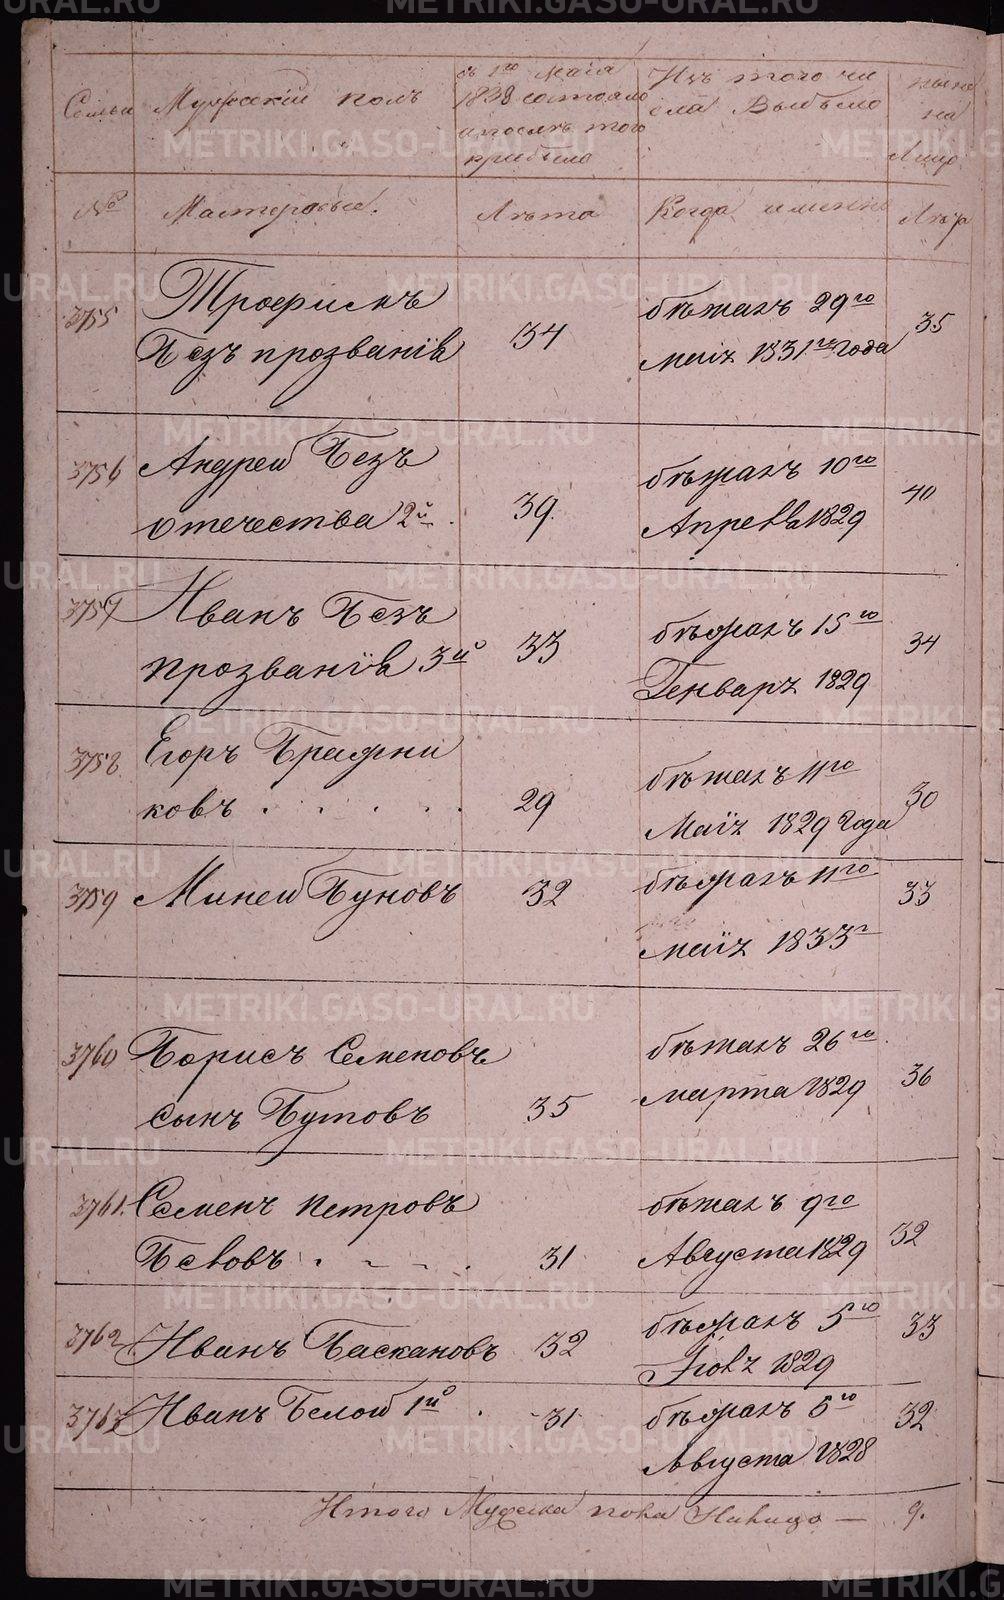 Семьи
Мужескій полъ
съ 1го Маія
1838 состояло
и послѣ того
прибыло
Изъ того чи
сла Выбыло
ныне
на
Лицо
№
Мастеровые.
Лѣта
Когда именно
Лѣта
3755
Трофимъ
Безъ прозванія
34
бѣжалъ 29го
маія 1831го года
35
3756
Андрей Безъ
отечества 2й.
39
бѣжалъ 10го
Апреля 1829
40
3757
Иванъ Безъ
прозванія 3й
33
бѣжалъ 15го
Генваря 1829
34
3758
Егоръ Бражни
ковъ . . . . .
29
бѣжалъ 11го
Маія 1829 года
30
3759
Миней Буновъ
32
бѣжалъ 11го
маія 1833г
33
3760
Борисъ Семеновъ
сынъ Бутовъ
35
бѣжалъ 26го
марта 1829
36
3761.
Семенъ Петровъ
Беловъ . . . .
31
бѣжалъ 9го
Августа 1829
32
3762
Иванъ Баскановъ
32
бѣжалъ 5го
Іюля 1829
33
3763
Иванъ Белой 1й .
31
бѣжалъ 5го
Августа 1828
32
Итого Мужска пола Налицо — 9.
METRIKI.GASO-URAL.RU